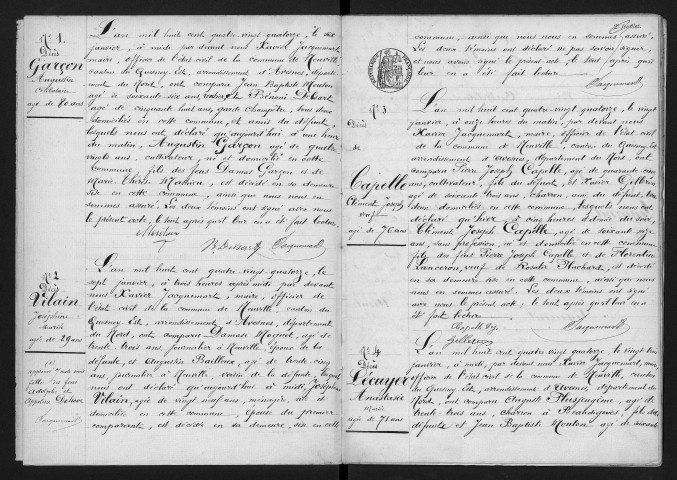 N° 1
Décès
Garçon
Augustin
Célibataire
agé de 80 ans
L'an mil huit cent quatre vingt quatorze, le
janvier, à midi par devant nous Xavier Jacquemart
maire, officier de l'état civil de la commune de Neuville,
canton du Quesnoy Est, arrondissement d'Avesnes, départe
ment du Nord, ont comparu Jean Baptiste Mouton
agé de soixante dix ans, et
agé de cinquante huit ans, garde champêtre, tous deux
domiciliés en cette commune, et amis du défunt,
lesquels nous ont déclaré qu'aujourd'hui à une heure
du matin, Augustin Garçon agé de quatre
vingts ans, cultivateur, né et domicilié en cette
commune, fils des feus Damas Garçon et de
Marie Thérèse Mathieu, est décédé en sa demeure
sise en cette commune, ainsi que nous nous en
sommes assuré. Les deux témoins ont signé avec nous
le présent acte, le tout après qu'il leur en a été fait lecture.
Jacquemart
N° 2
Décès
Vilain
Joséphine
Marié
agé de 29 ans
L'an mil huit cent quatre vingt quatorze, le
sept janvier, à trois heures après midi par devant
nous Xavier Jacquemart, maire, officier de
l'état civil de la commune de Neuville, canton du
Quesnoy Est, arrondissement d'Avesnes, département
du Nord, ont comparu Damas Moquet, agé de
trente trois ans, journalier à Neuville, époux de la
défunte, et Augustin Bailleux, agé de trente cinq
ans, journalier à Neuville, voisin de la défunte, lesquels
nous ont déclaré qu'aujourd'hui à midi, Joséphine
Vilain, agée de vingt neuf ans, ménagère, née et
domiciliée en cette commune, épouse du premier
comparant, est décédée en sa demeure, sise en cette
fille des feus
Adolphe et
Jacquemart
commune, ainsi que nous nous en sommes assuré.
Les deux témoins ont déclaré ne pas savoir signer,
et nous avons signé le présent acte, le tout après qu'il
leur en a été fait lecture.
Jacquemart
N° 3
Décès
de
Capelle
Clément Joseph
veuf
agé de 76 ans
L'an mil huit cent quatre vingt quatorze, le vingt
janvier, à onze heures du matin, par devant nous
Xavier Jacquemart, maire, officier de l'état civil
de la commune de Neuville, canton du Quesnoy Est,
arrondissement d'Avesnes, département du Nord, ont
comparu Pierre Joseph Capelle, agé de quarante cinq
ans, cultivateur, fils du défunt, et Xavier
agé de soixante trois ans, charron, ami du défunt, tous
deux domiciliés, en cette commune, lesquels nous ont
déclaré qu'hier, à cinq heures et demie du soir,
Clément Joseph Capelle, agé de soixante seize
ans, sans profession, né et domicilié en cette commune
fils des feus Pierre Joseph Capelle et de Florentine
Lanceron, veuf de Rosalie Pluchart, est décédé
en sa demeure sise en cette commune, ainsi que
nous nous en sommes assuré. Les deux témoins ont signé
avec nous le présent acte; le tout après qu'il leur en a
été fait lecture.
Jacquemart
N° 4
Décès
de
Lécuyer
Anastasie
agée de 71 ans
L'an mil huit cent quatre vingt quatorze, le vingt trois
janvier, à midi, par devant nous Xavier Jacquemart, maire
officier de l'état civil de la commune de Neuville, canton
du Quesnoy Est, arrondissement d'Avesnes, département du
Nord, ont comparu Auguste agé de
trente trois ans, charron à fils de la
défunte et Jean Baptiste Mouton agé de soixante